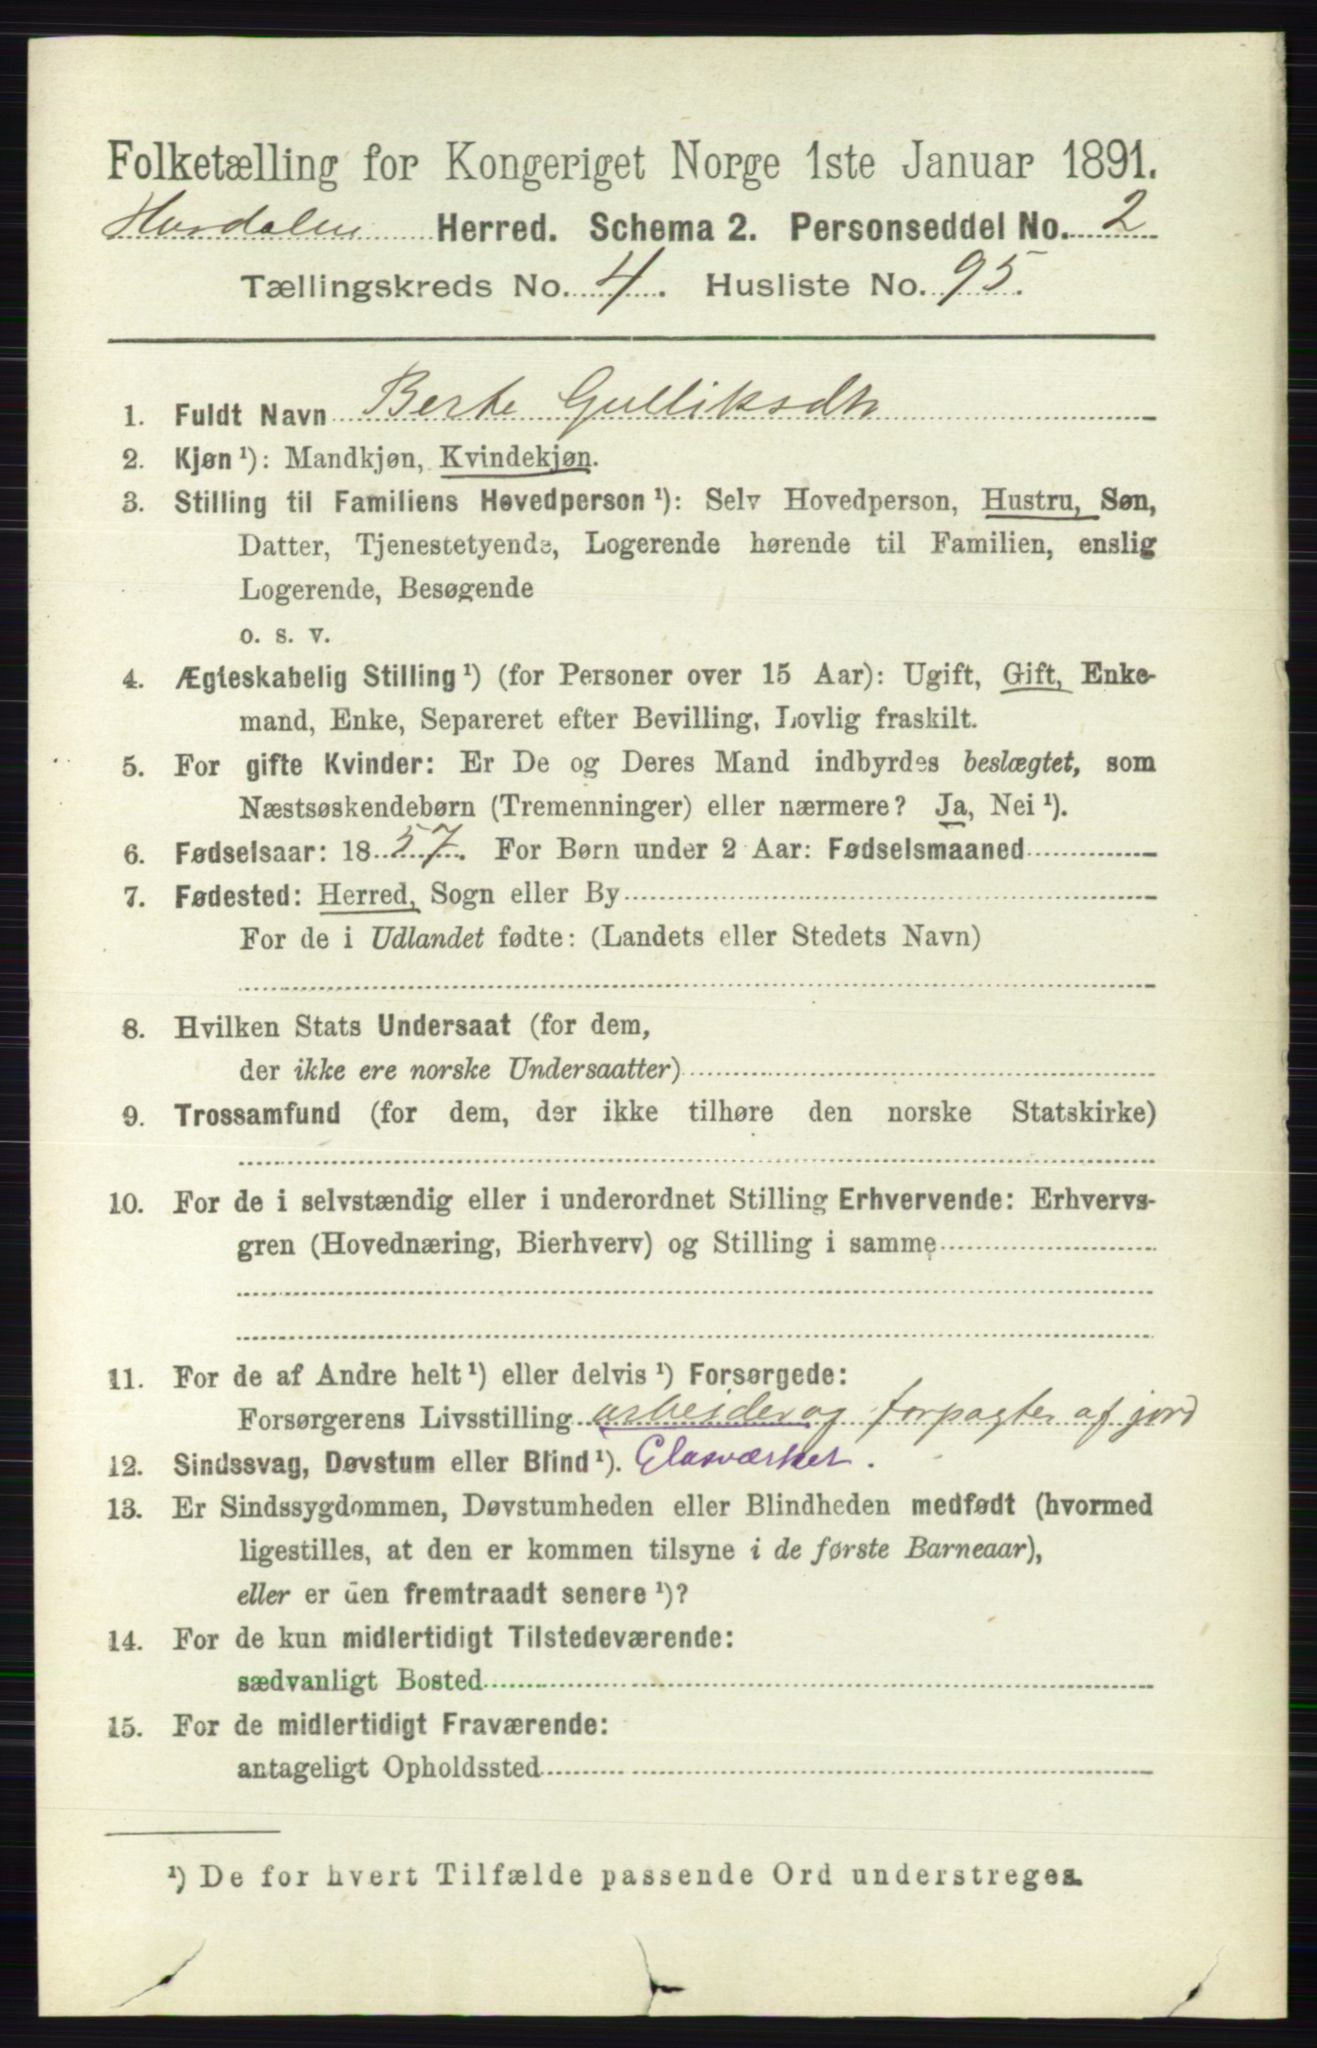 Folketælling for Kongeriget Norge 1ste Januar 1891.
Hurdalen Herred. Schema 2. Personseddel No. 2
Tællingskreds No. 4. Husliste No. 95.
1. Fuldt Navn Berte Gulliksdtr
2. Kjøn ¹): Mandkjøn, Kvindekjøn.
3. Stilling til Familiens Hovedperson ¹): Selv Hovedperson, Hustru, Søn,
Datter, Tjenestetyende, Logerende hørende til Familien, enslig
Logerende, Besøgende
o. s. v.
4. Ægteskabelig Stilling ¹) (for Personer over 15 Aar): Ugift, Gift, Enke-
mand, Enke, Separeret efter Bevilling, Lovlig fraskilt.
5. For gifte Kvinder: Er De og Deres Mand indbyrdes beslægtet, som
Næstsøskendebørn (Tremenninger) eller nærmere? Ja, Nei ¹).
6. Fødselsaar: 1857. For Børn under 2 Aar: Fødselsmaaned
7. Fødested: Herred, Sogn eller By
For de i Udlandet fødte: (Landets eller Stedets Navn)
8. Hvilken Stats Undersaat (for dem,
der ikke ere norske Undersaatter)
9. Trossamfund (for dem, der ikke tilhøre den norske Statskirke)
10. For de i selvstændig eller i underordnet Stilling Erhvervende: Erhvervs-
gren (Hovednæring, Bierhverv) og Stilling i samme
11. For de af Andre helt ¹) eller delvis ¹) Forsørgede:
Forsørgerens Livsstilling arbeider og forpagter af jord
12. Sindssvag, Døvstum eller Blind ¹). Glasværket.
13. Er Sindssygdommen, Døvstumheden eller Blindheden medfødt (hvormed
ligestilles, at den er kommen tilsyne i de første Barneaar),
eller er den fremtraadt senere ¹)?
14. For de kun midlertidigt Tilstedeværende:
sædvanligt Bosted
15. For de midlertidigt Fraværende:
antageligt Opholdssted
¹) De for hvert Tilfælde passende Ord understreges.